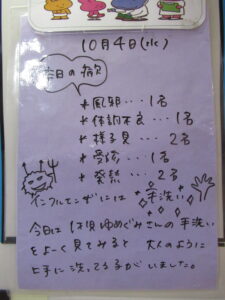 10月4日(水)
今日の病欠
*風邪・・・1名
*体調不良・・・1名
*様子見・・・2名
*受診・・・1名
*発熱・・・2名
インフルエンザには
手洗い
今日は1才頃ゆめぐみさんの手洗い
をよーく見てみると 大人のように
上手に洗ってる子がいました。